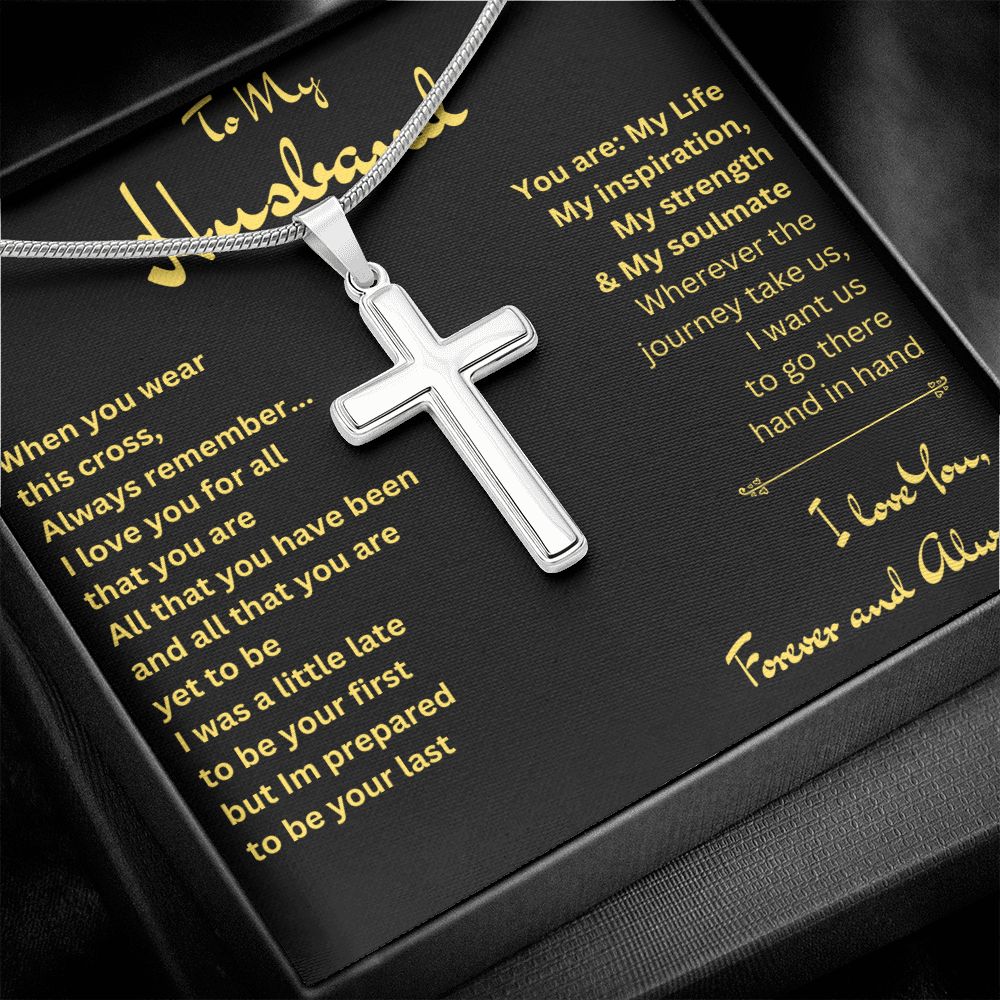 To My
Husband
When you wear
this cross,
Always remember...
I love you for all
that you are
All that you have been
and all that you are
yet to be
I was a little late
to be your first
but Im prepared
to be your last
You are: My Life
My inspiration,
My strength
& My soulmate
Wherever the
journey take us,
I want us
to go there
hand in hand
I love You,
Forever and